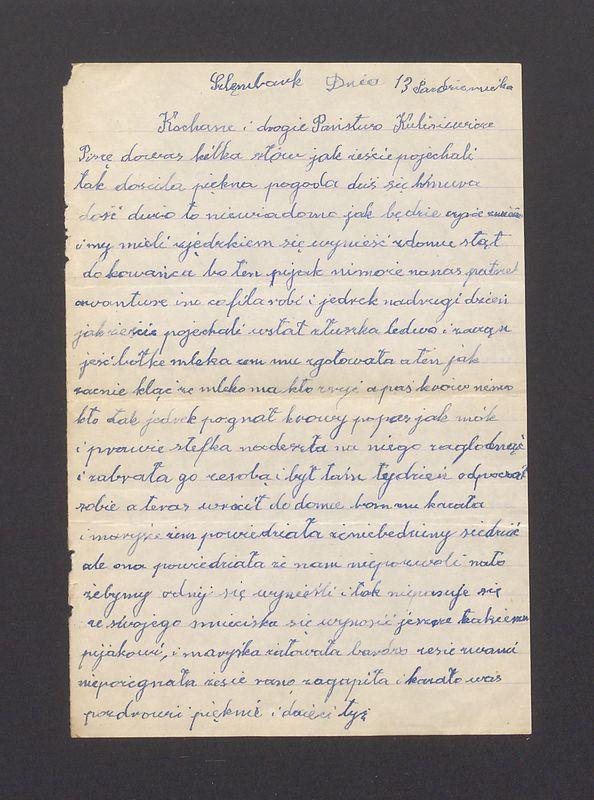 Szlęmbark Dnia 13 Pazdziernika
Kochane i drogie Państwo Kulisiewicze
Piszę dowas kilka słów jak zeście pojechali
tak dosciła piękna pogoda dziś się hmuva
dość duzo to niewiadomo jak będzie
i my mieli zjędrkiem się wynieść zdomu stąt
do kowańca bo ten pijak nimoże na nas patrzeć
awanture ino cofila robi i jedrek nadrugi dzień
jak zeście pojechali wstał złuszka ledwo i zacząn
jeść butke mleka zem mu zgotowała a ten jak
zacnie kląć ze mleko ma kto zryć a pas krów nimo
kto tak jedrek pognał krowy popas jak mók
i prawie stefka nadeszła na niego
i zabrała go zesoba i był tam tydzień odpoczął
sobie a teraz wrócił do domu bom mu kazała
i maryśce zem powiedziała ze niebedziemy siedzieć
ale ona powiedziała ze nam niepozwoli nato
zebymy odnij się wynieśli i tak niepasuje się
ze swojego smieciska się wynosić jeszcze takiemu
pijakowi, i maryśka załowała bardzo zesie zwami
niepozegnała zesie rano zagapiła i kazała was
pozdrowić pięknie i dzieci tyz